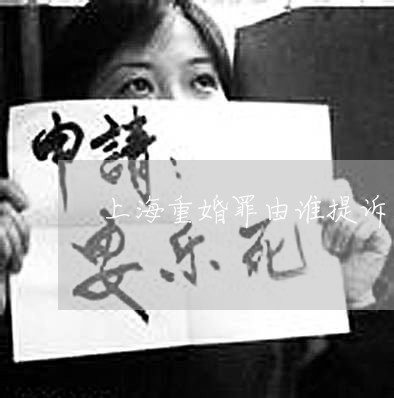 申請：
上海重婚罪由谁提诉
安乐死